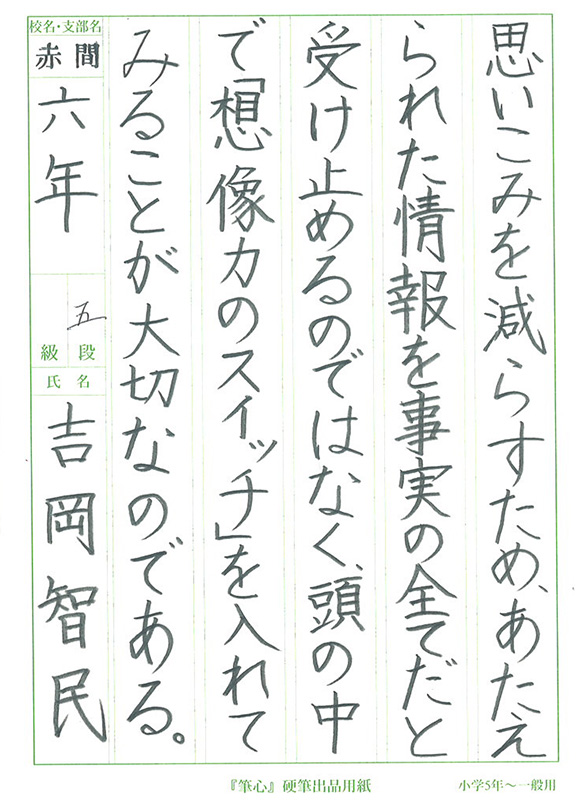 思いこみを減らすため、あたえ
られた情報を事実の全てだと
受け止めるのではなく、頭の中
で「想像力のスイッチ」を入れて
みることが大切なのである。
校名・支部名
赤間
六年
五
級段
氏名
吉岡智民
『筆心』硬筆出品用紙
小学5年～一般用